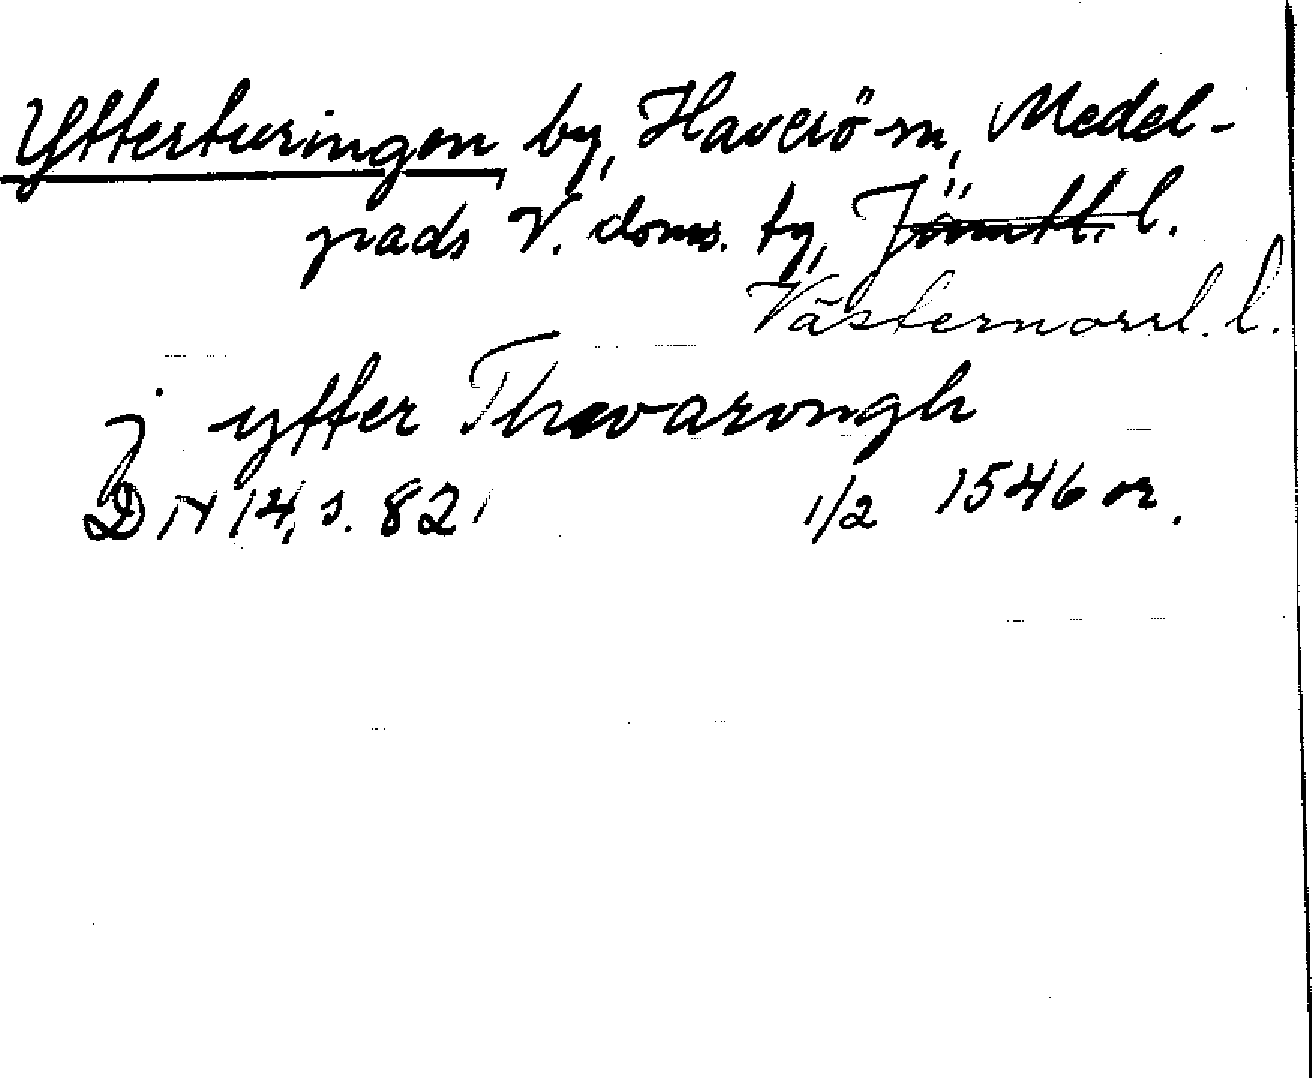 Ytterturingen by, Haverö sn, Medel-
pads V. doms. tg, Jämtl. l.
Västernorrl. l.
j ytter Thwarongh
DN 14, s. 821 1/2 1546 or.